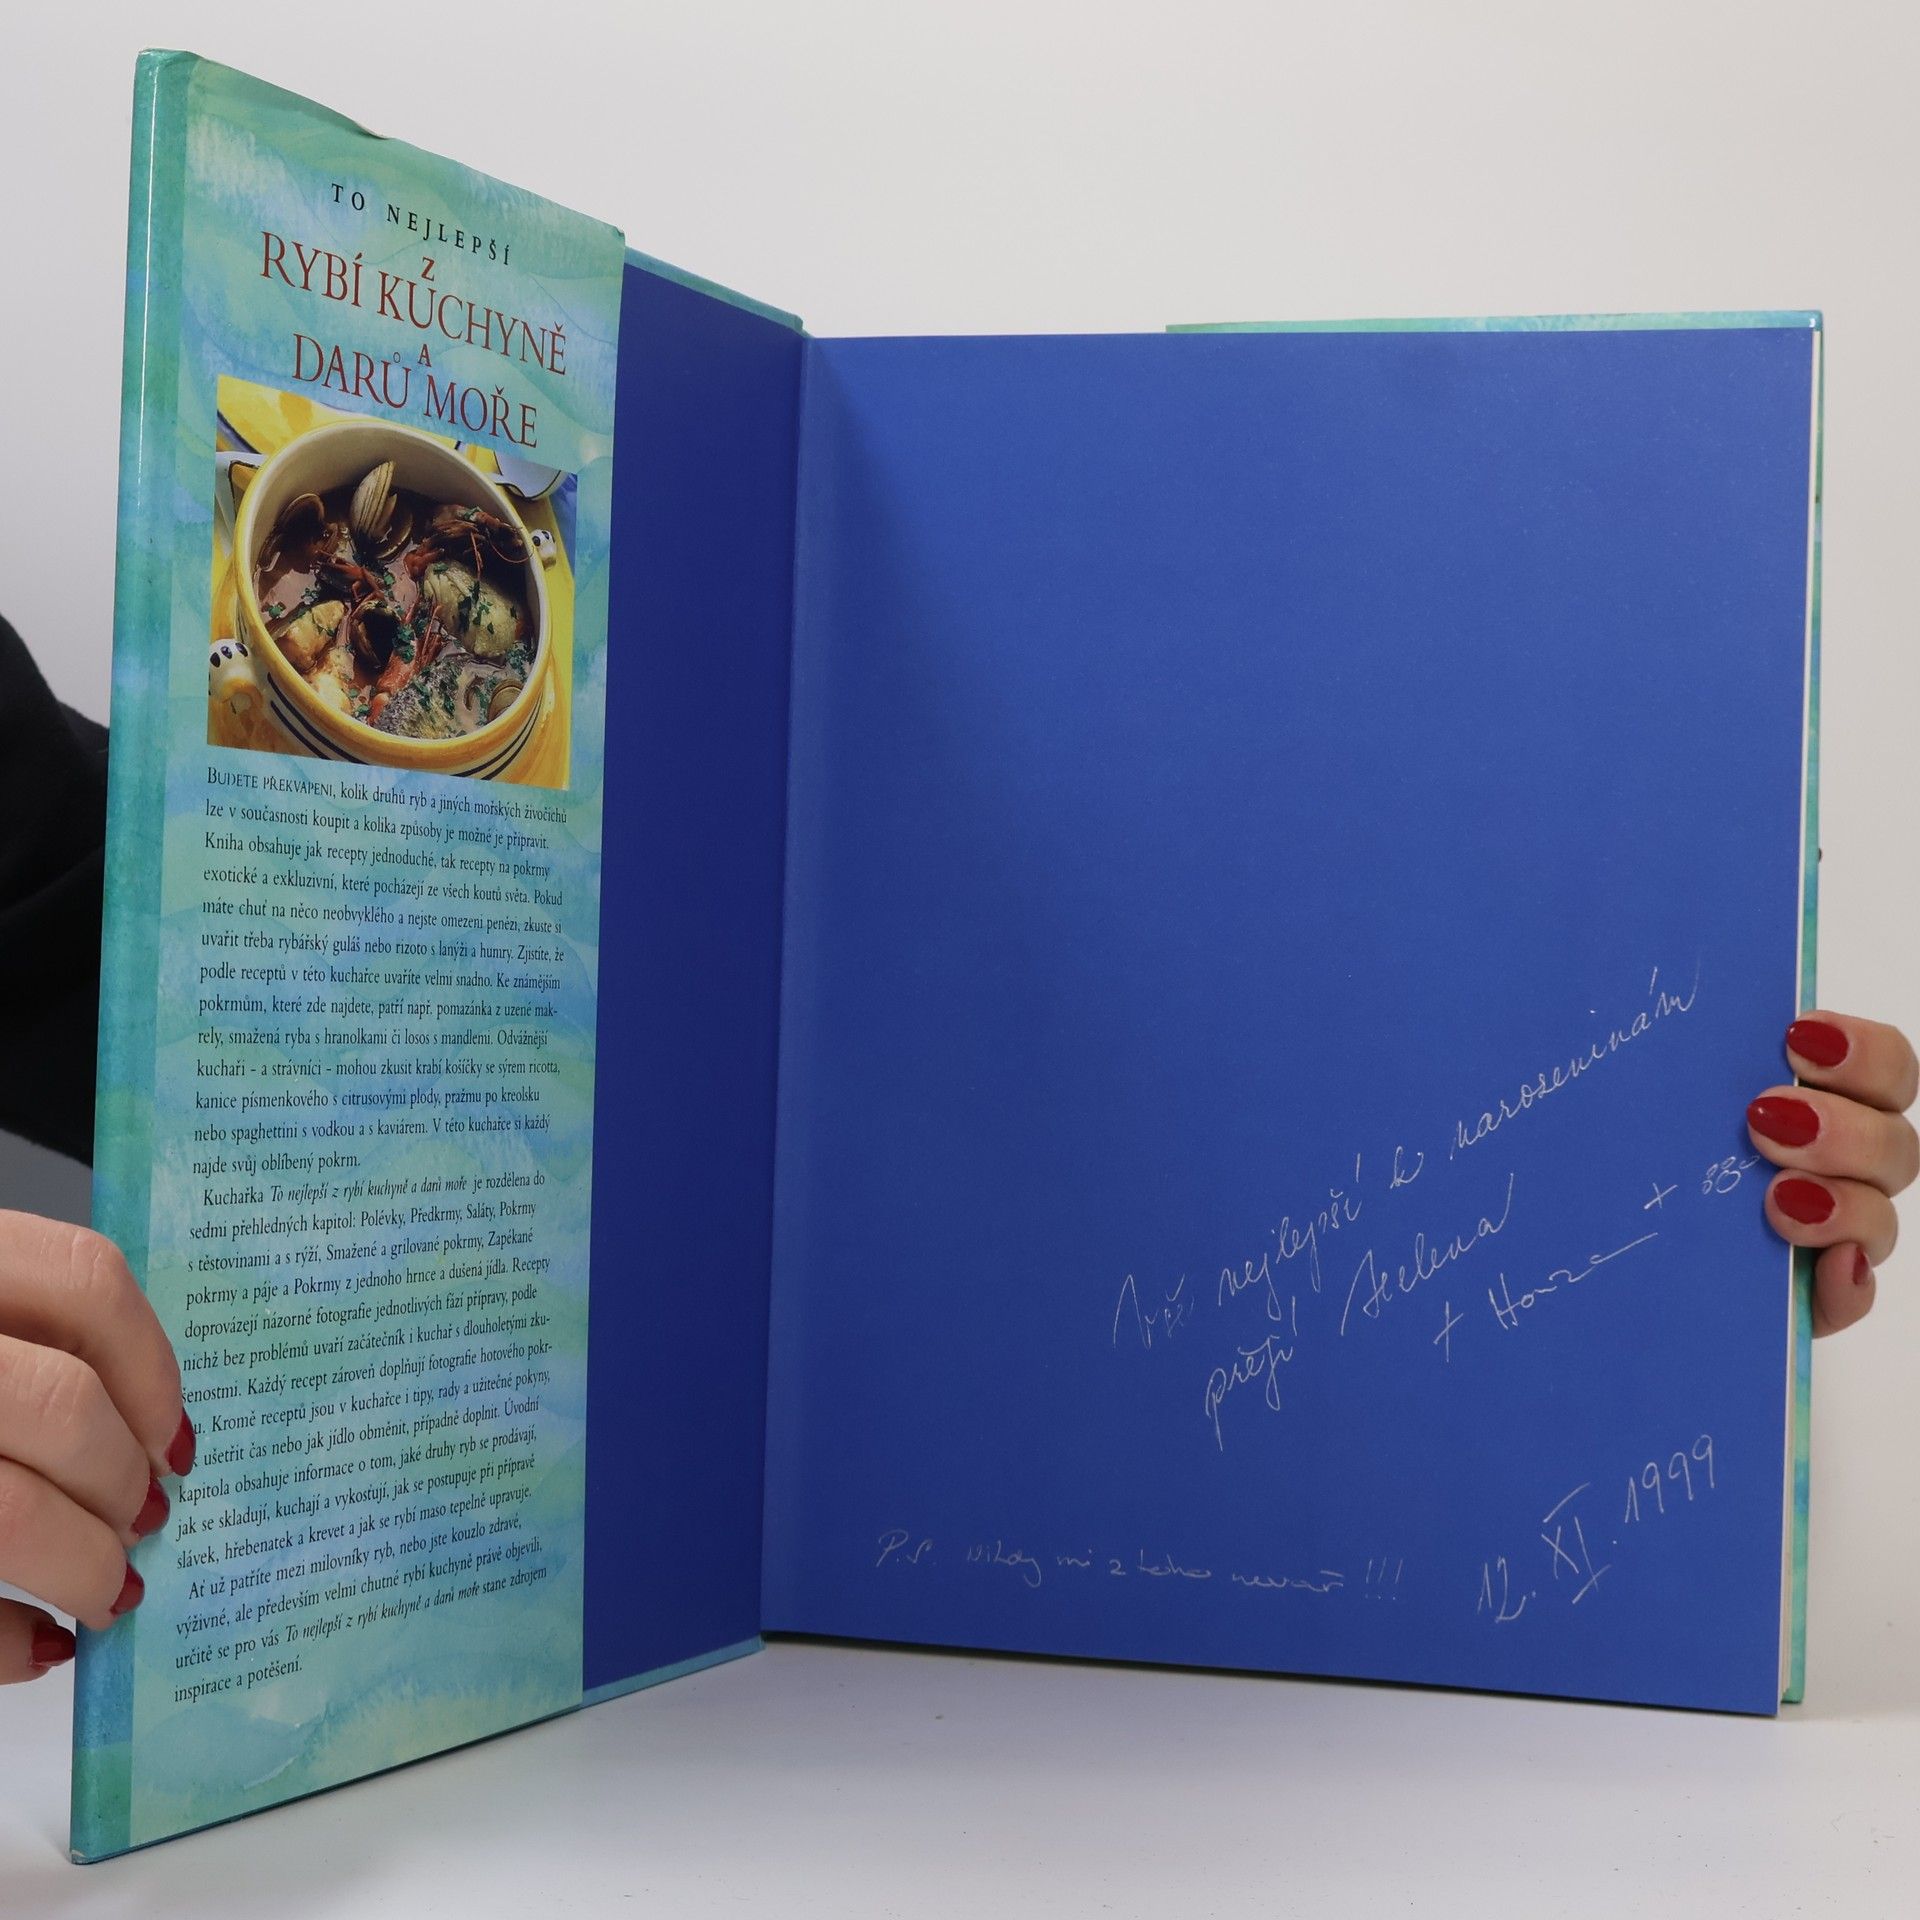 TO NEJLEPŠÍ
Z
RYBÍ KUCHYNĚ
A
DARŮ MOŘE
BUDETE PŘEKVAPENI, kolik druhů ryb a jiných mořských živočichů
lze v současnosti koupit a kolika způsoby je možné je připravit.
Kniha obsahuje jak recepty jednoduché, tak recepty na pokrmy
exotické a exkluzivní, které pocházejí ze všech koutů světa. Pokud
máte chuť na něco neobvyklého a nejste omezeni penězi, zkuste si
uvařit třeba rybářský guláš nebo rizoto s lanýži a humry. Zjistíte, že
podle receptů v této kuchařce uvaříte velmi snadno. Ke známějším
pokrmům, které zde najdete, patří např. pomazánka z uzené mak-
rely, smažená ryba s hranolkami či losos s mandlemi. Odvážnější
kuchaři – a strávníci – mohou zkusit krabí košíčky se sýrem ricotta,
kanice písmenkového s citrusovými plody, pražmu po kreolsku
nebo spaghettini s vodkou a s kaviárem. V této kuchařce si každý
najde svůj oblíbený pokrm.
Kuchařka To nejlepší z rybí kuchyně a darů moře je rozdělena do
sedmi přehledných kapitol: Polévky, Předkrmy, Saláty, Pokrmy
s těstovinami a s rýží, Smažené a grilované pokrmy, Zapékané
pokrmy a páje a Pokrmy z jednoho hrnce a dušená jídla. Recepty
doprovázejí názorné fotografie jednotlivých fází přípravy, podle
nichž bez problémů uvaří začátečník i kuchař s dlouholetými zku-
šenostmi. Každý recept zároveň doplňují fotografie hotového pokr-
u. Kromě receptů jsou v kuchařce i tipy, rady a užitečné pokyny,
k ušetřit čas nebo jak jídlo obměnit, případně doplnit. Úvodní
kapitola obsahuje informace o tom, jaké druhy ryb se prodávají,
jak se skladují, kuchají a vykosťují, jak se postupuje při přípravě
slávek, hřebenatek a krevet a jak se rybí maso tepelně upravuje.
Ať už patříte mezi milovníky ryb, nebo jste kouzlo zdravé,
výživné, ale především velmi chutné rybí kuchyně právě objevili,
určitě se pro vás To nejlepší z rybí kuchyně a darů moře stane zdrojem
inspirace a potěšení.
Vše nejlepší k narozeninám
přejí Helena
+ Honza +
12. XI. 1999
P.S. Nikdy mi z toho nevař !!!